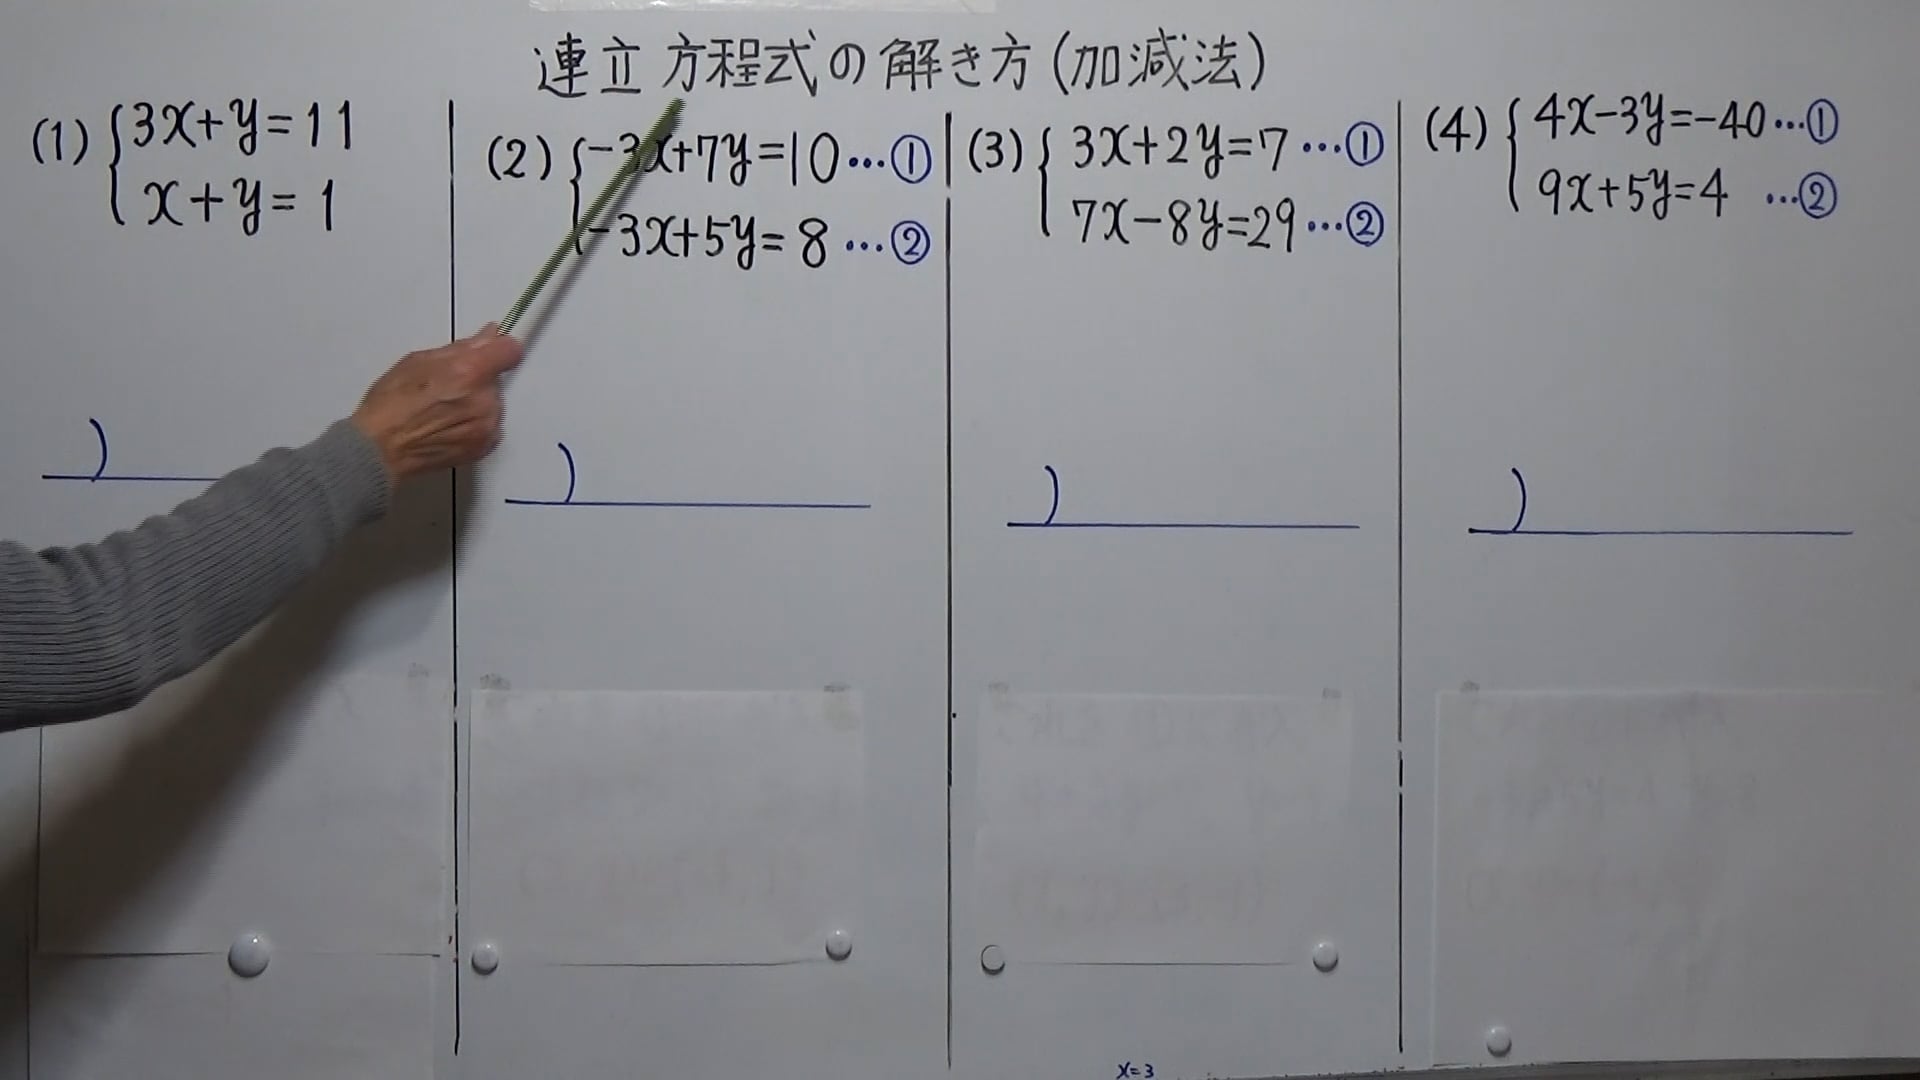 連立方程式の解き方(加減法)
(1) 3x+y=11
x+y=1
(2) -3x+7y=10…①
-3x+5y=8…②
(3) 3x+2y=7…①
7x-8y=29…②
(4) 4x-3y=-40…①
9x+5y=4…②
)
)
)
)
x=3